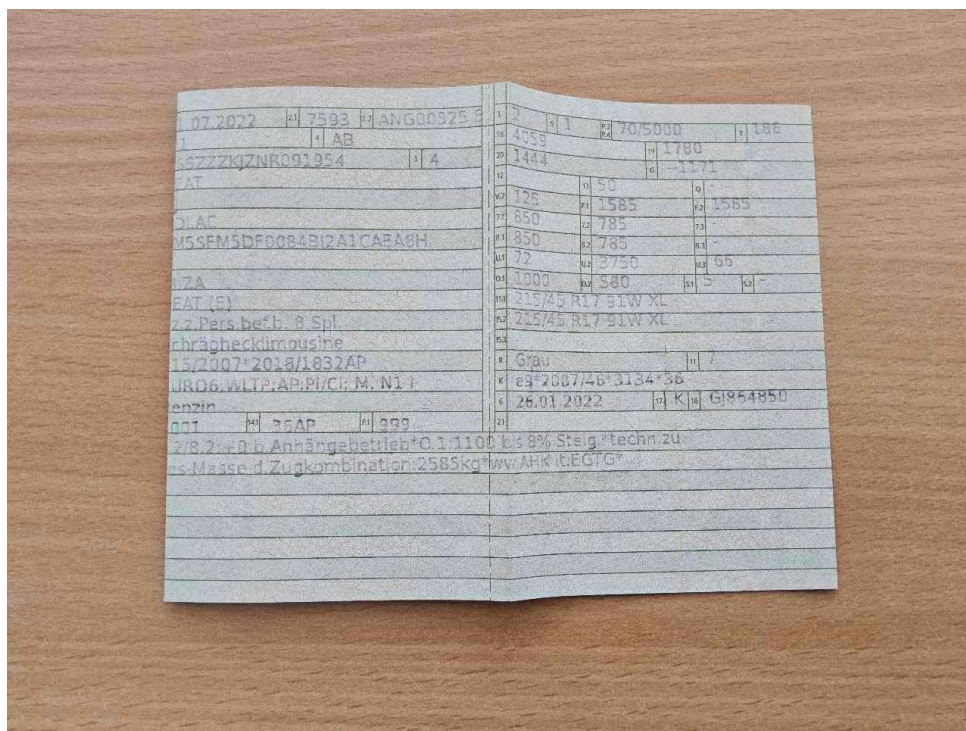 07.2022 2.1 7593 2.2 ANG00525 5
4 AB
SSZZZKJZNR091954 3 4
EAT
OLAC
M5SFM5DF0084BI2A1CAEA8H
IZA
EAT (E)
z.z.Pers.bef.b. 8 Spl.
chräghecklimousine
15/2007*2018/1832AP
URO6;WLTP;AP;PI/CI; M, N1 I
enzin
001 14.1 36AP P.1 999
2/8.2:+0 b.Anhängebetrieb*O.1:1100 bis 8% Steig.*techn.zu
es-Masse d.Zugkombination:2585kg*ww.AHK lt.EGTG*
L 2 9 1 P.2 P.4 70/5000 T 186
18 4059 19 1780
20 1444 G --1171
12 13 50 Q -
V.7 125 F.1 1585 F.2 1585
7.1 850 7.2 785 7.3 -
8.1 850 8.2 785 8.3 -
U.1 72 U.2 3750 U.3 66
O.1 1000 O.2 580 S.1 5 S.2 -
15.1 215/45 R17 91W XL
15.2 215/45 R17 91W XL
15.3
R Grau 11 7
K e9*2007/46*3134*36
6 26.01.2022 17 K 16 GJ864850
21